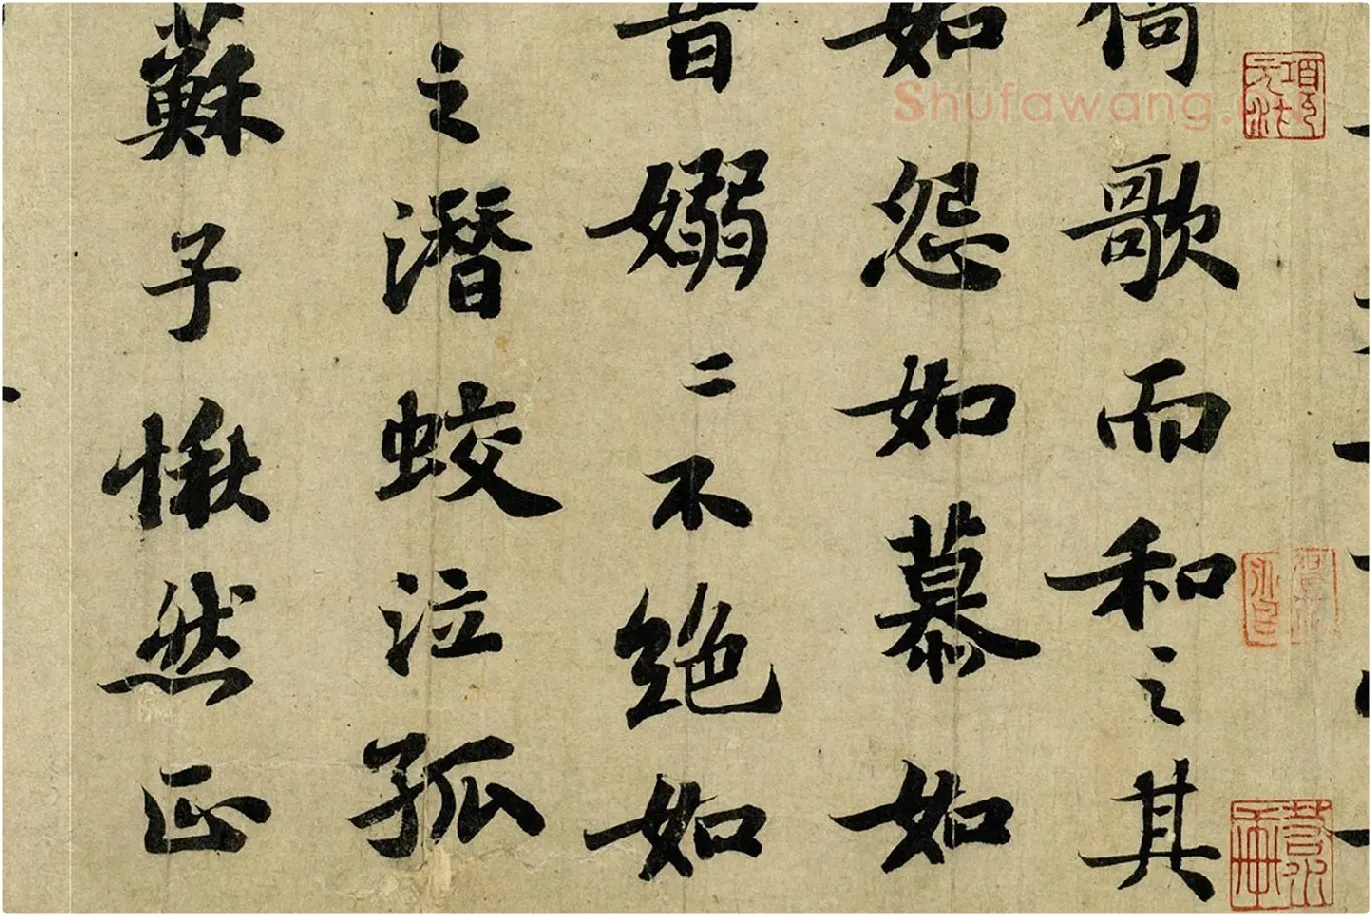 倚歌而和之其
如怨如慕如
音嫋二不絶如
之潛蛟泣孤
蘇子愀然正
Shufawang.cn